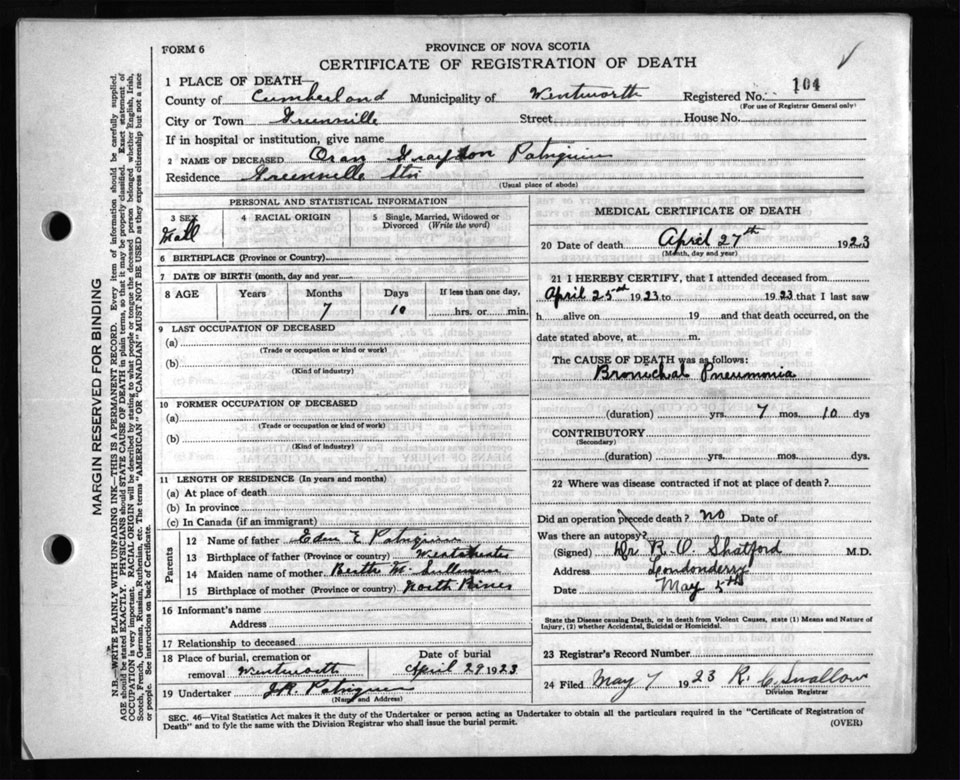 FORM 6
PROVINCE OF NOVA SCOTIA
CERTIFICATE OF REGISTRATION OF DEATH
1 PLACE OF DEATH—
County of Cumberland Municipality of Wentworth Registered No. 104
(For use of Registrar General only)
City or Town Greenville Street House No.
If in hospital or institution, give name
2 NAME OF DECEASED Oran Graydon Patriquin
Residence Greenville Stn
(Usual place of abode)
PERSONAL AND STATISTICAL INFORMATION
3 SEX Mall
4 RACIAL ORIGIN
5 Single, Married, Widowed or Divorced (Write the word)
6 BIRTHPLACE (Province or Country)
7 DATE OF BIRTH (month, day and year)
8 AGE Years Months Days If less than one day,
7 10 hrs. or min.
9 LAST OCCUPATION OF DECEASED
(a)
(Trade or occupation or kind of work)
(b)
(Kind of industry)
10 FORMER OCCUPATION OF DECEASED
(a)
(Trade or occupation or kind of work)
(b)
(Kind of industry)
11 LENGTH OF RESIDENCE (In years and months)
(a) At place of death
(b) In province
(c) In Canada (if an immigrant)
Parents
12 Name of father Eden E Patriquin
13 Birthplace of father (Province or country)
14 Maiden name of mother M.
15 Birthplace of mother (Province or country) North River
16 Informant's name
Address
17 Relationship to deceased
18 Place of burial, cremation or removal Wentworth
Date of burial April 29 1923
19 Undertaker J.R. Patriquin
(Name and Address)
MEDICAL CERTIFICATE OF DEATH
20 Date of death April 27th 1923
(Month, day and year)
21 I HEREBY CERTIFY, that I attended deceased from
April 25rd 1923 to 1923 that I last saw
h alive on 19 and that death occurred, on the
date stated above, at m.
The CAUSE OF DEATH was as follows:
Bronichal Pneumonia
(duration) yrs. 7 mos. 10 dys
CONTRIBUTORY
(Secondary)
(duration) yrs. mos. dys.
22 Where was disease contracted if not at place of death?
Did an operation precede death? no Date of
Was there an autopsy?
(Signed) Dr R. O. Shatford M.D.
Address Londonderry
Date May 5th
State the Disease causing Death, or in death from Violent Causes, state (1) Means and Nature of
Injury, (2) whether Accidental, Suicidal or Homicidal.
23 Registrar's Record Number
24 Filed May 7 1923 R. C. Swallow
Division Registrar
SEC. 46—Vital Statistics Act makes it the duty of the Undertaker or person acting as Undertaker to obtain all the particulars required in the "Certificate of Registration of
Death" and to fyle the same with the Division Registrar who shall issue the burial permit.
(OVER)
MARGIN RESERVED FOR BINDING
N.B.—WRITE PLAINLY WITH UNFADING INK—THIS IS A PERMANENT RECORD. Every item of information should be carefully supplied.
AGE should be stated EXACTLY. PHYSICIANS should STATE CAUSE OF DEATH in plain terms, so that it may be properly classified. Exact statement of
OCCUPATION is very important. RACIAL ORIGIN will be described by stating to what people or tongue the deceased person belonged whether English, Irish,
Scotch, French, German, Russian, Ruthenian, etc. The terms "AMERICAN" OR "CANADIAN" MUST NOT BE USED as they express citizenship but not a race
or people. See instructions on back of Certificate.